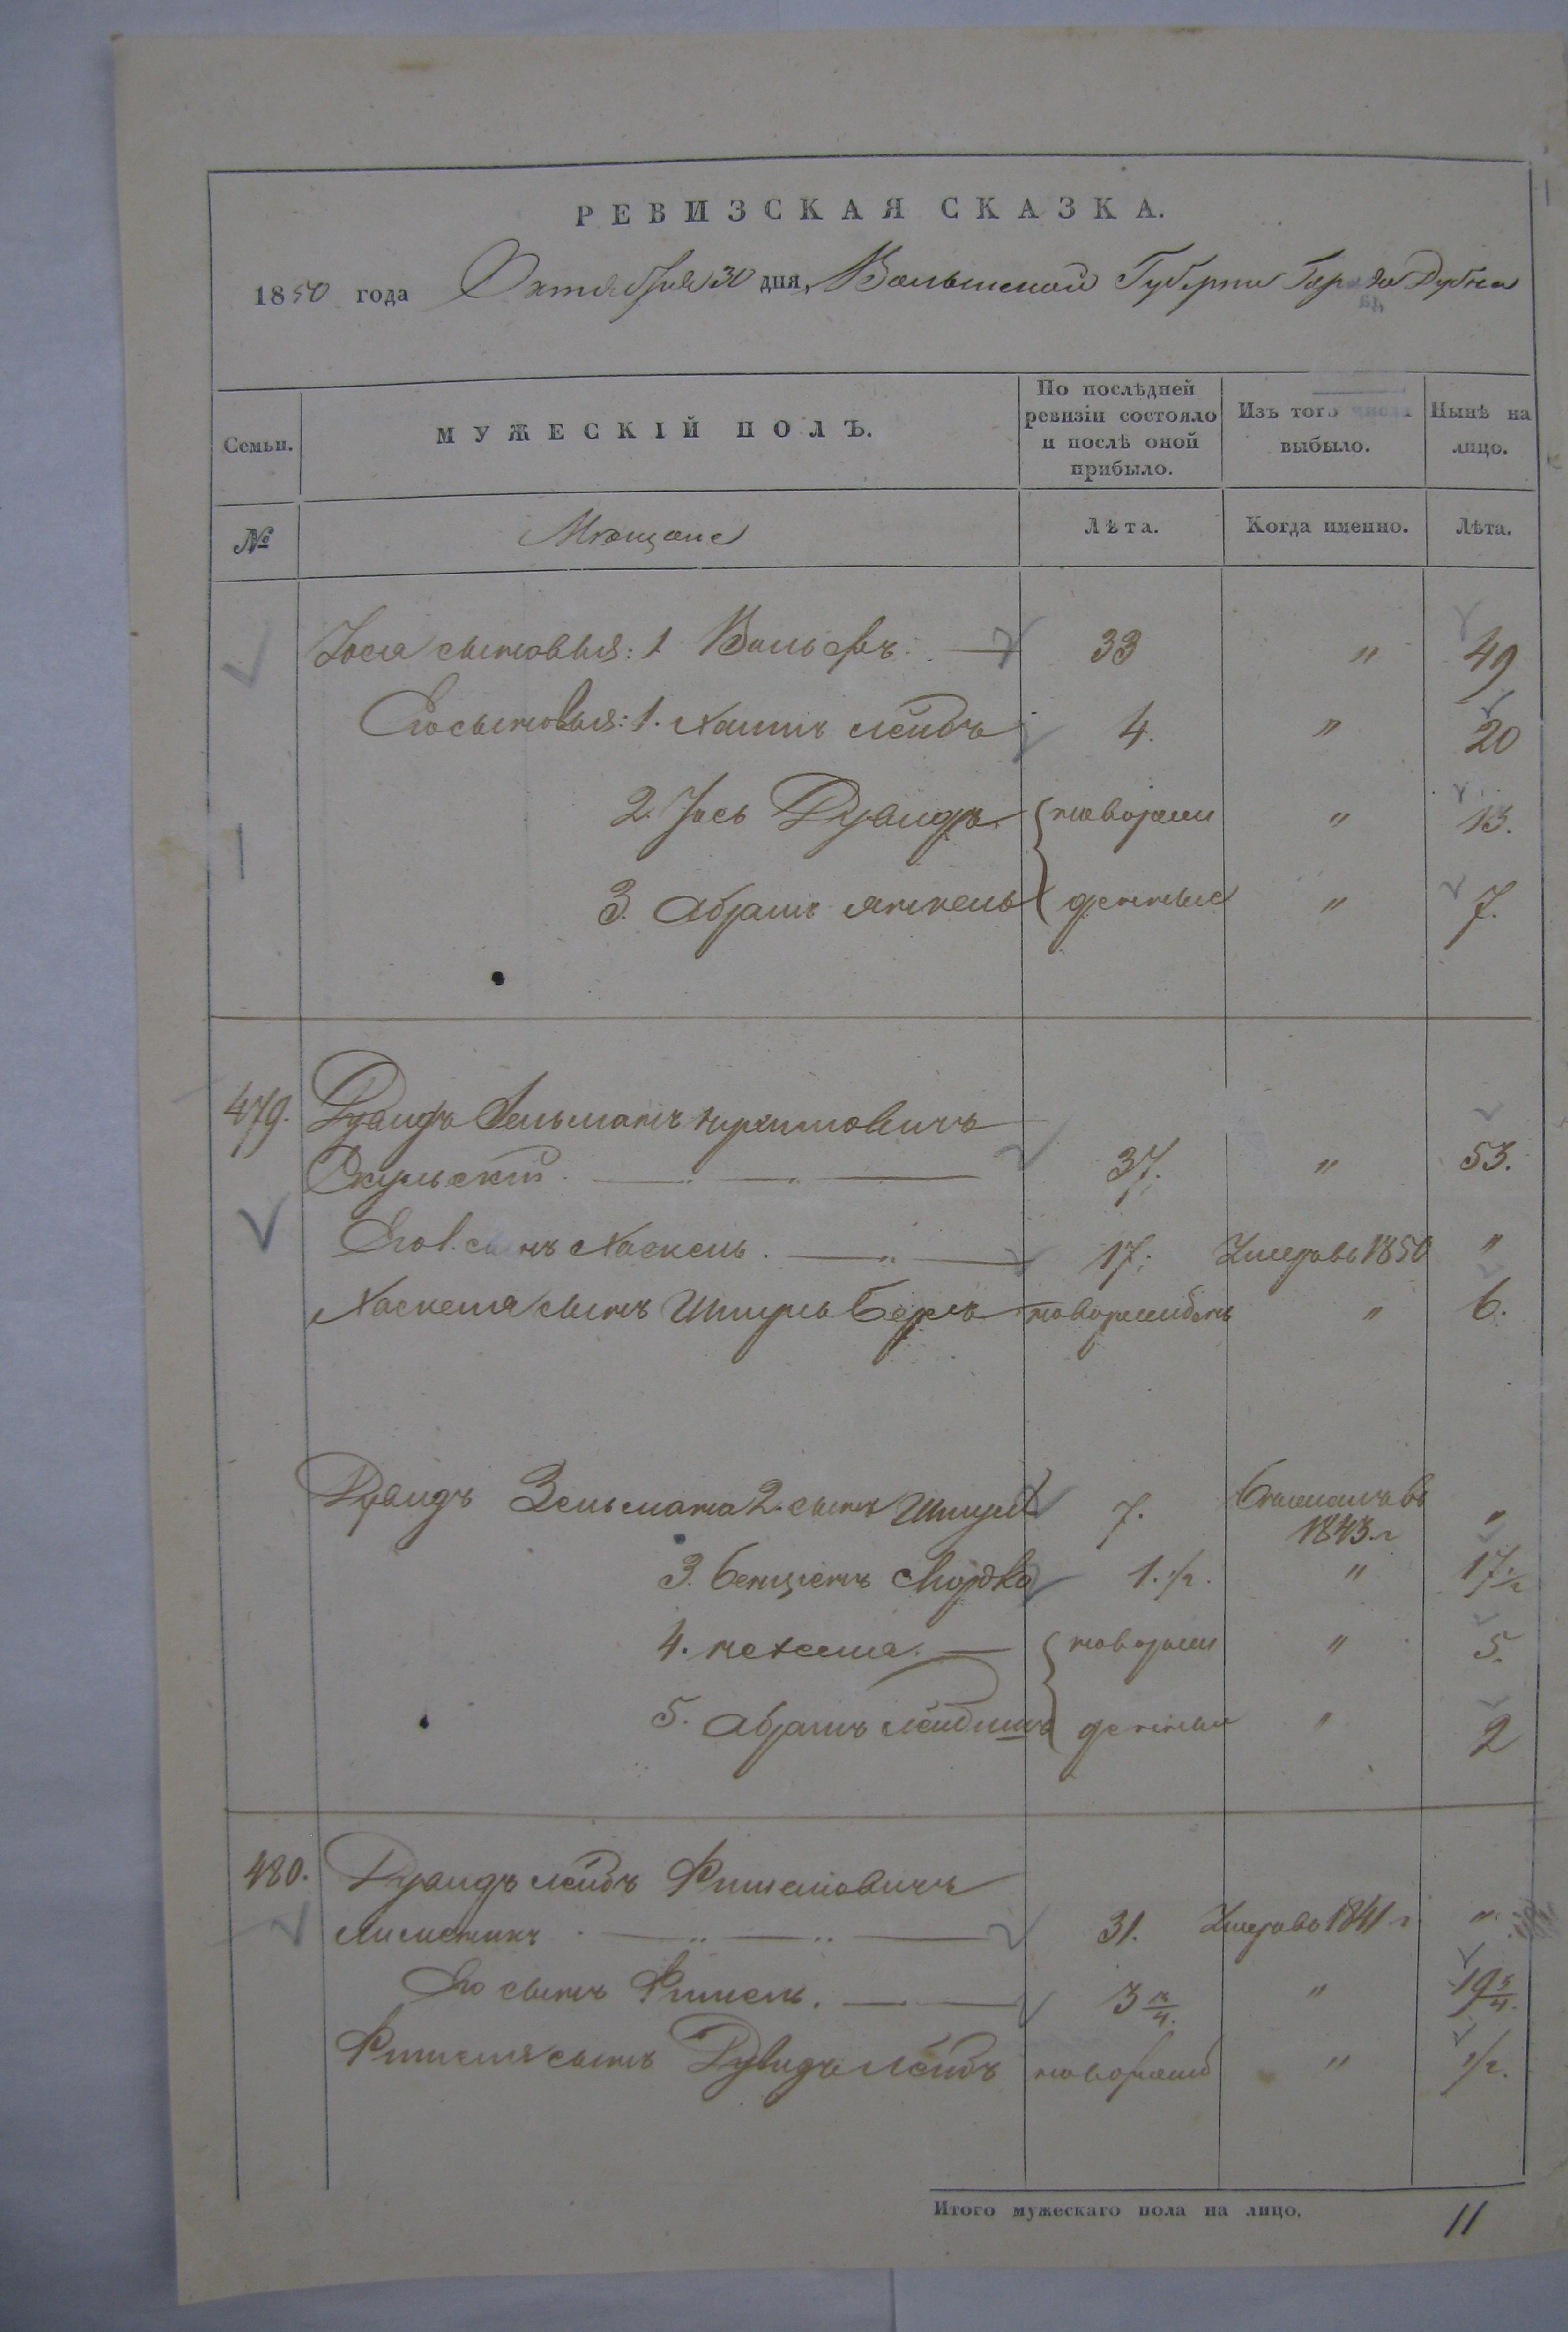 РЕВИЗСКАЯ СКАЗКА.
1850 года Октября 30 дня, Волынской Губернии Города Дубна
Семьи. МУЖЕСКІЙ ПОЛЪ. По послѣдней ревизіи состояло и послѣ оной прибыло. Изъ того числа выбыло. Нынѣ на лицо.
№ Мѣщане Лѣта. Когда именно. Лѣта.
Іося сыновья: 1 Вольфъ. 33 " 49
Его сыновья: 1. Хаимъ Лейбъ 4. " 20
2. Іось Дувидъ новорож " 13.
3. Абрамъ Янкель денные " 7.
479. Дувидъ Зельманъ
Окульскій 37. " 53.
Его 1. сынъ Хаскель. 17. Умеръ въ 1850 "
Хаскеля сынъ Шмуль Беръ новорожден " 6.
Дувидъ Зельмана 2. сынъ Шмуль 7. 1843 г "
3. Бенціенъ Мордко 1.1/2. " 17 1/2
4. Нехемя. новорож " 5.
5. Абрамъ денные " 2
480. Дувидъ Лейбъ Фишелiовичъ
31. Умеръ въ 1841 г "
Его сынъ Фишель. 3 3/4. " 19 3/4.
Фишеля сынъ Дувидъ Лейбъ новорожд " 1/2.
Итого мужескаго пола на лицо. 11